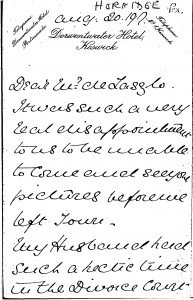 HORRIDGE
Aug. 20. 19
Derwentwater Hotel,
Keswick
Dear Mr. de Laszlo.
It was such a very
real disappointment
to us to be unable
to come and see your
pictures before we
left Town.
My Husband had
such a hectic time
in the Divorce Court